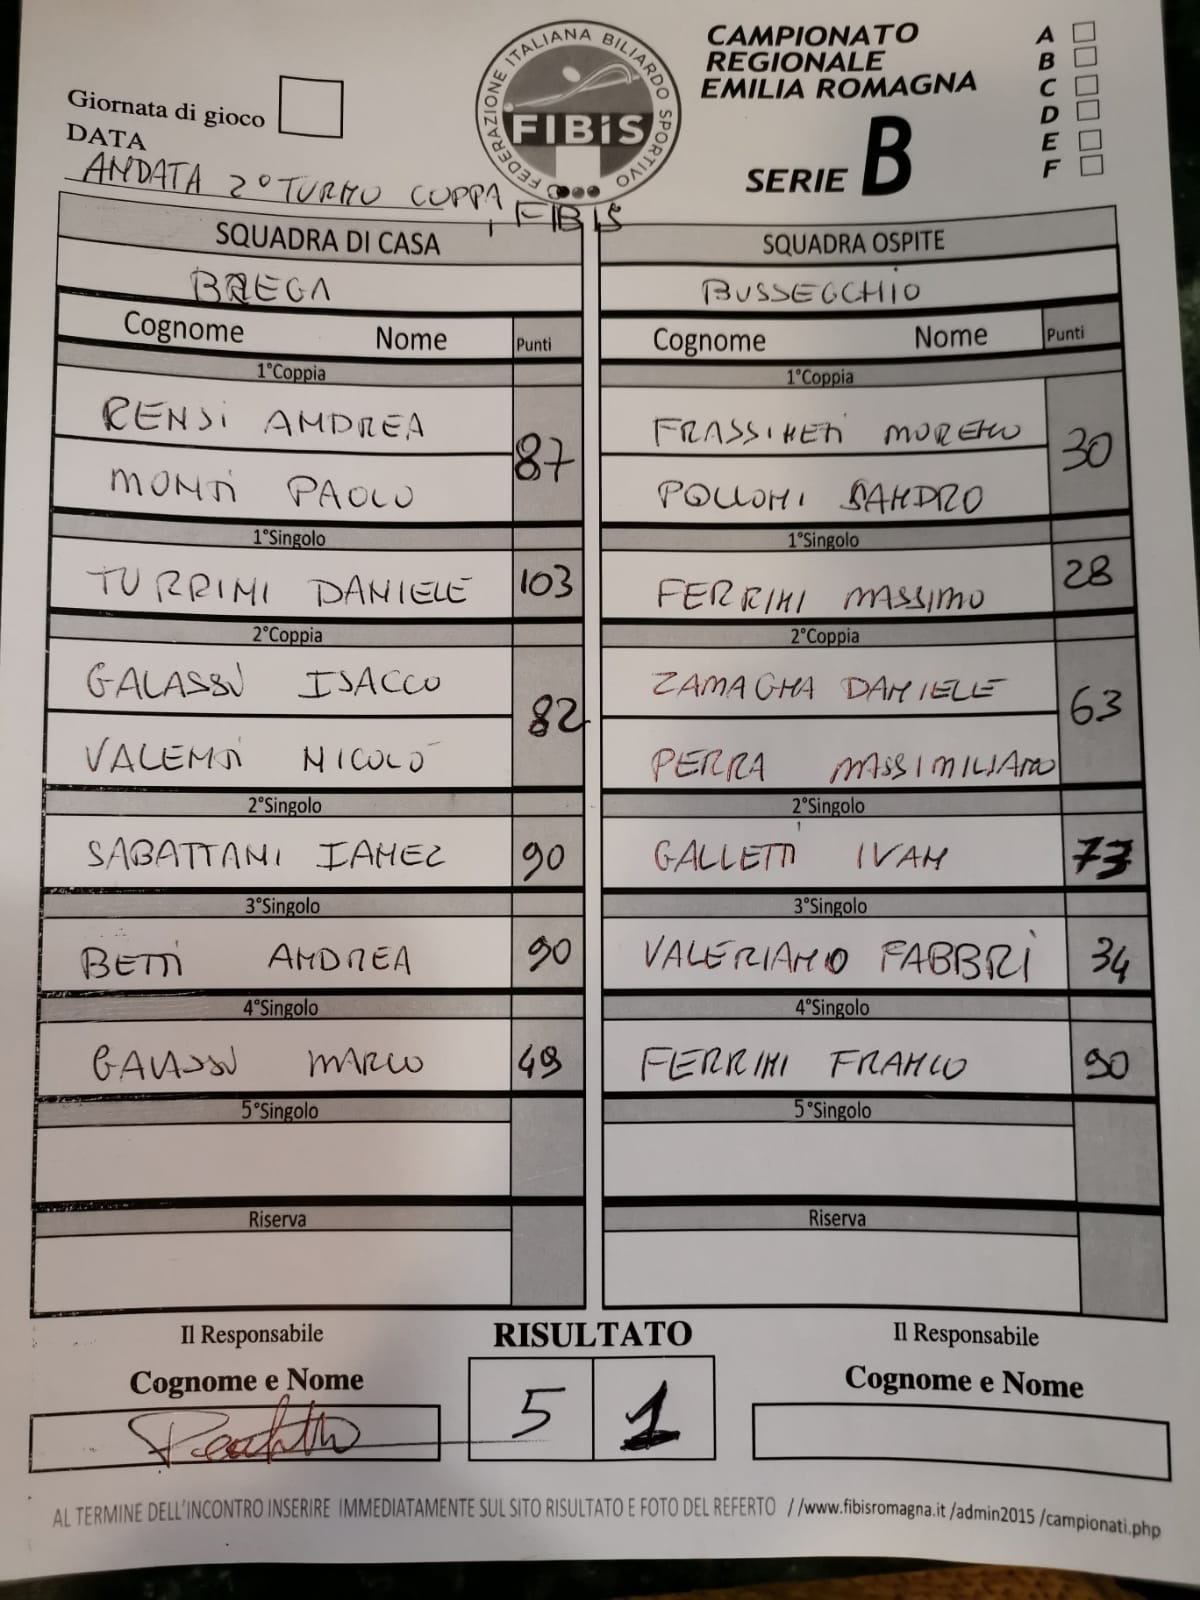 FEDERAZIONE ITALIANA BILIARDO SPORTIVO
FIBiS
CAMPIONATO
REGIONALE
EMILIA ROMAGNA
SERIE B
A
B
C
D
E
F
Giornata di gioco
DATA
ANDATA 2° TURNO COPPA FIBIS
SQUADRA DI CASA
SQUADRA OSPITE
BREGA
BUSSECCHIO
Cognome Nome Punti
Cognome Nome Punti
1°Coppia
1°Coppia
RENSI ANDREA
87
MONTI PAOLO
FRASSINETI MORENO
30
POLLONI SANDRO
1°Singolo
1°Singolo
TURRINI DANIELE 103
FERRINI MASSIMO 28
2°Coppia
2°Coppia
GALASSI ISACCO
82
VALENTI NICOLÒ
ZAMAGNA DANIELE
63
PERRA MASSIMILIANO
2°Singolo
2°Singolo
SABATTANI IAMEZ 90
GALLETTI IVAN 73
3°Singolo
3°Singolo
BETTI ANDREA 90
VALERIANO FABBRI 34
4°Singolo
4°Singolo
GALASSI MARCO 49
FERRINI FRANCO 90
5°Singolo
5°Singolo
Riserva
Riserva
Il Responsabile
RISULTATO
Il Responsabile
Cognome e Nome
5 1
Cognome e Nome
AL TERMINE DELL'INCONTRO INSERIRE IMMEDIATAMENTE SUL SITO RISULTATO E FOTO DEL REFERTO //www.fibisromagna.it /admin2015 /campionati.php